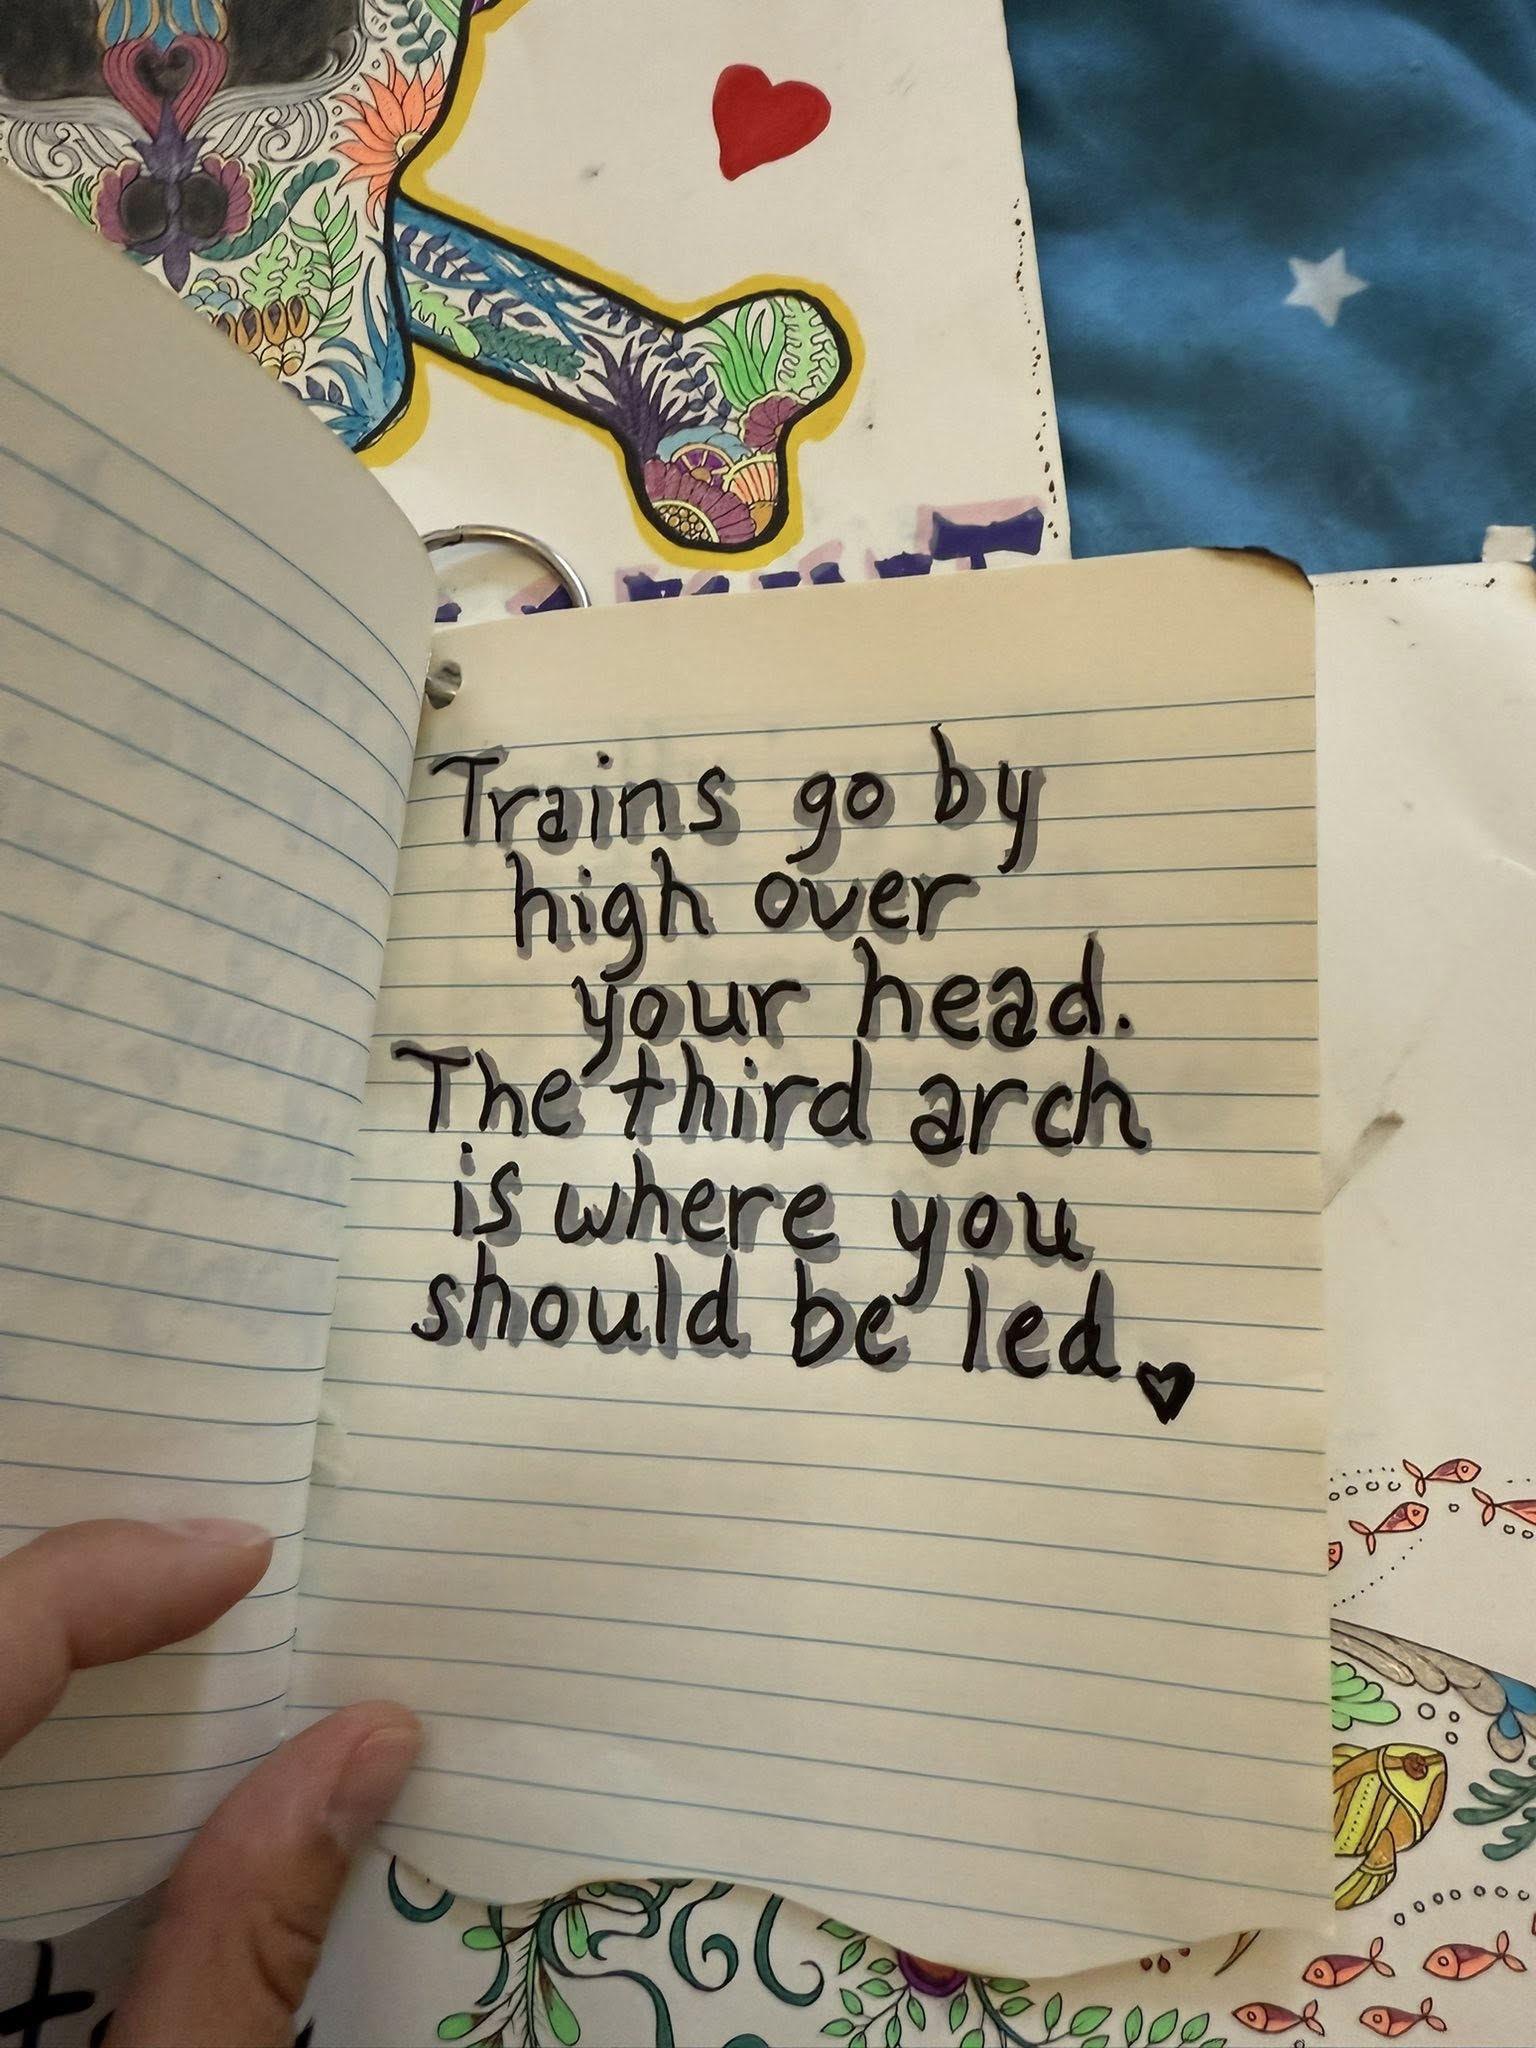 Trains go by
high over
your head.
The third arch
is where you
should be led